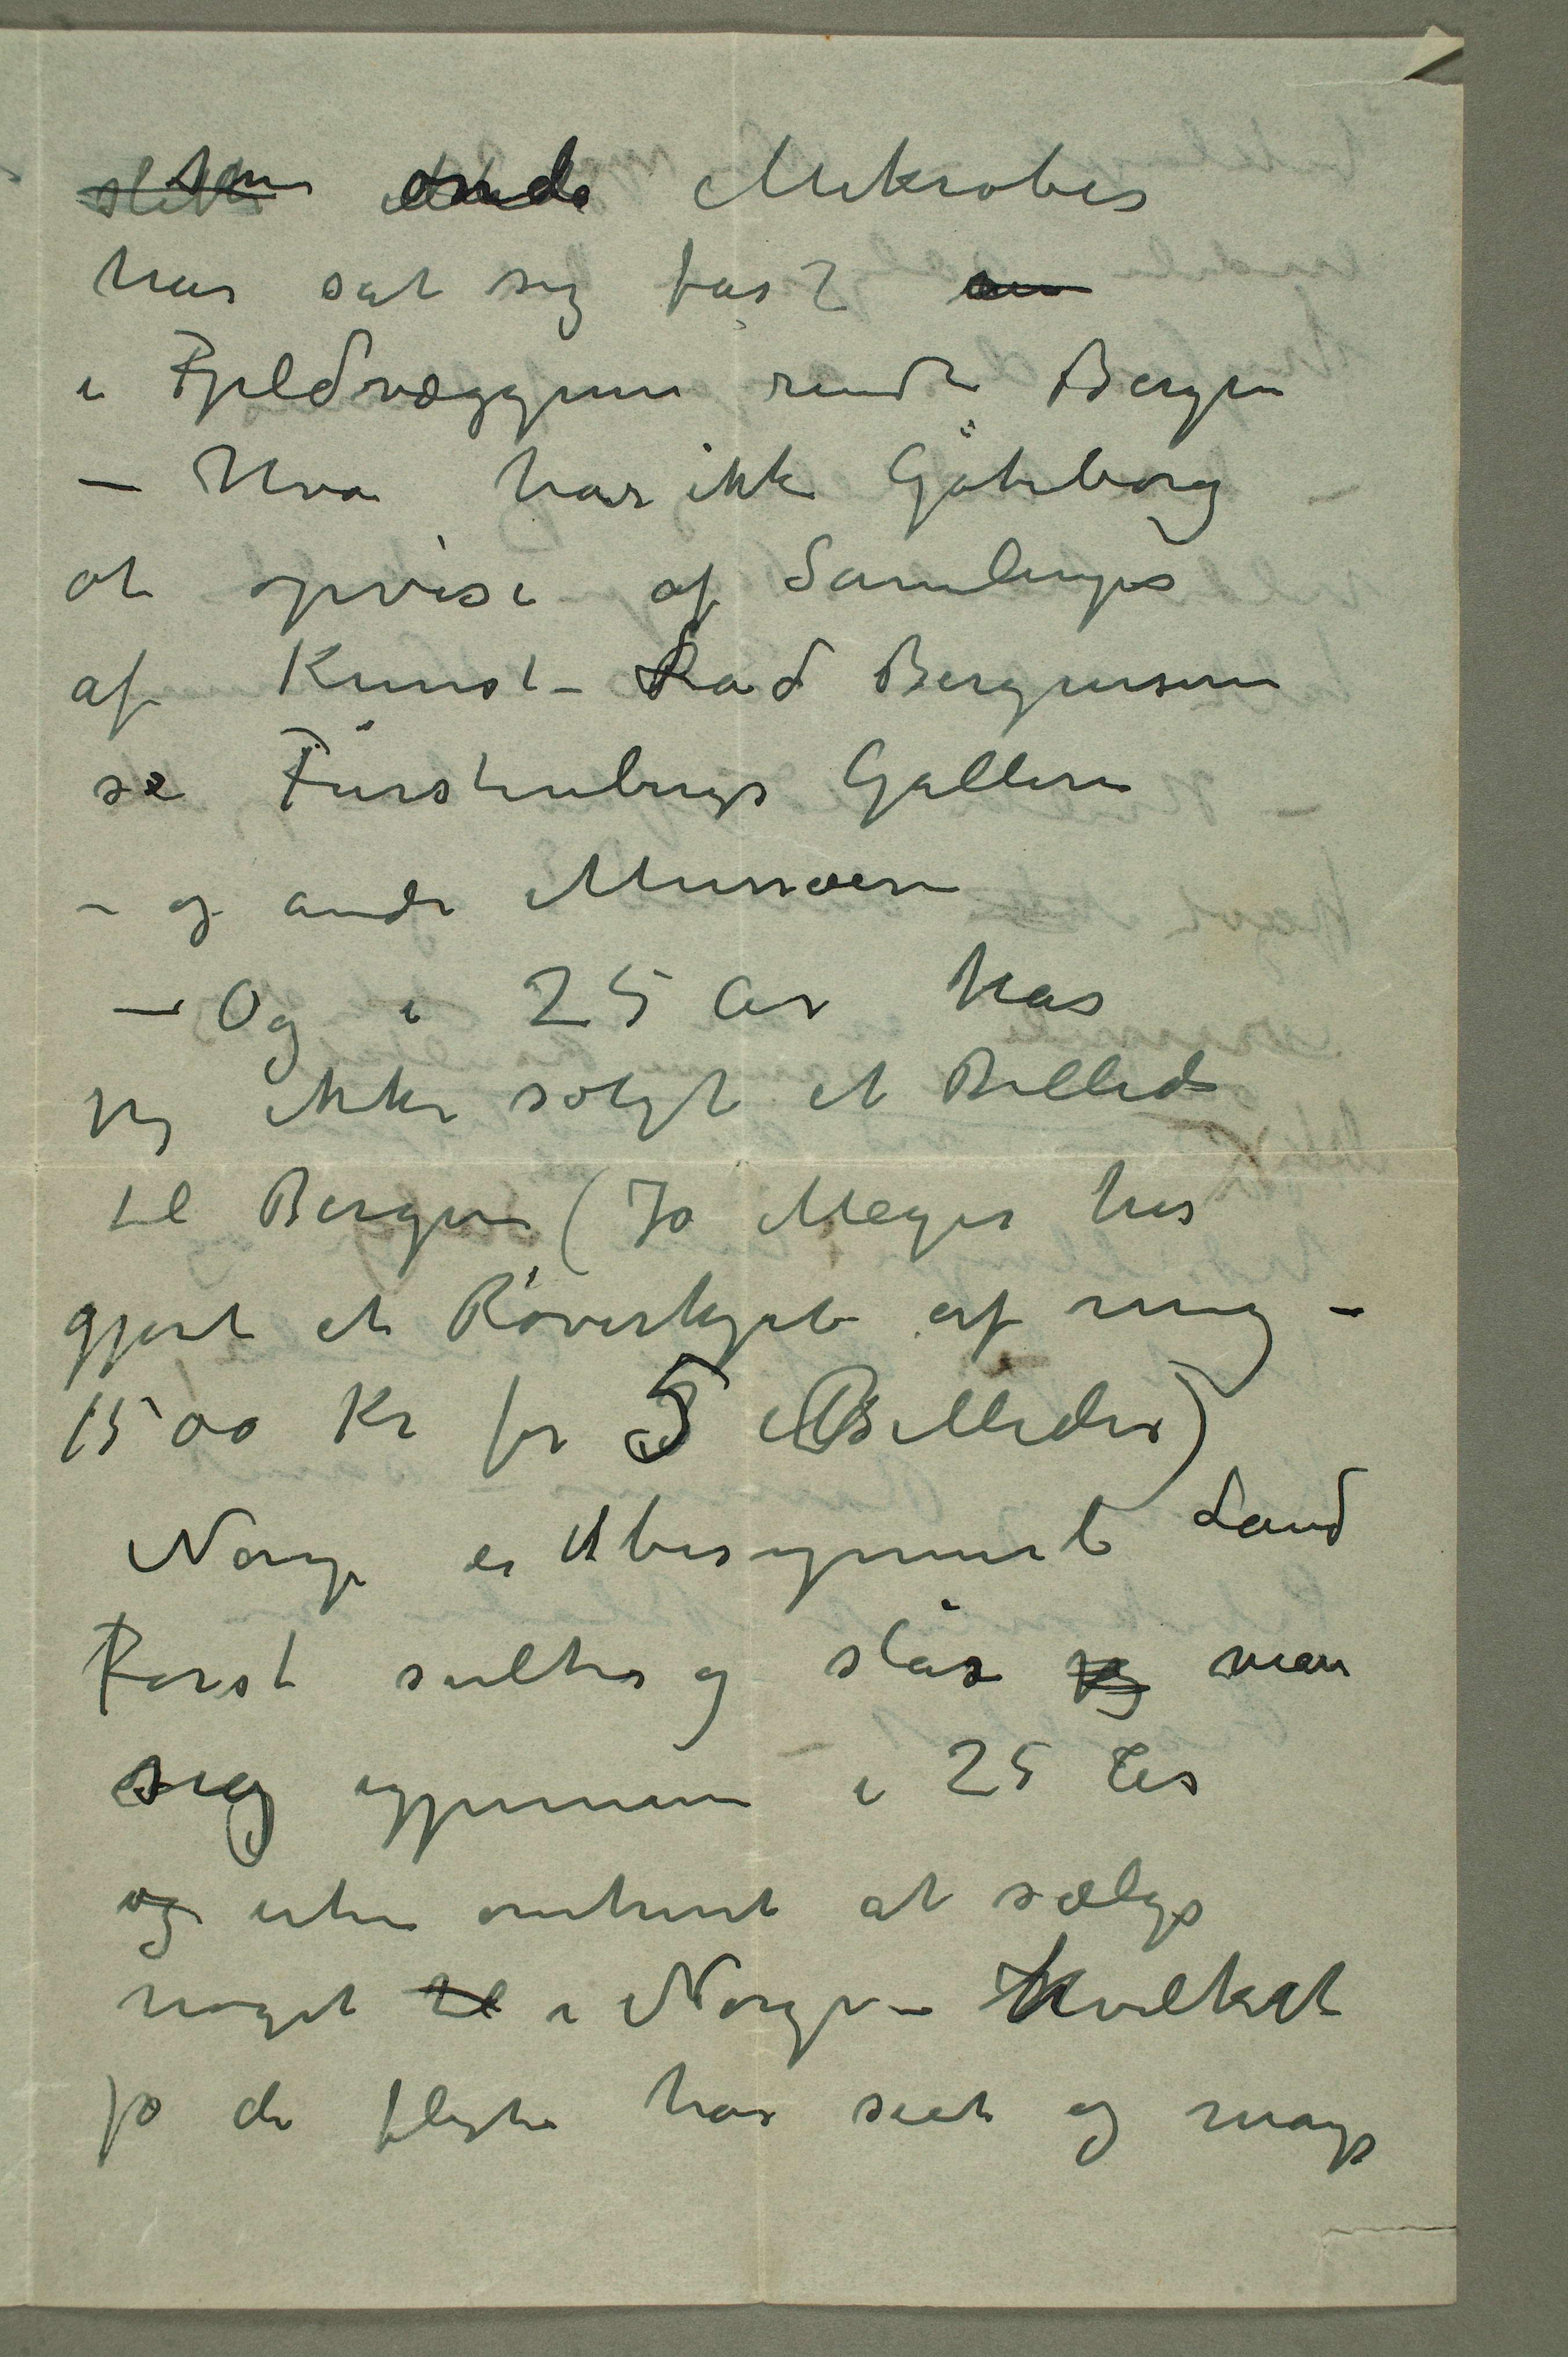 onde Mikrober
har sat sig fast
i Fjeldvæggene rundt Bergen
– Hva har ikke Göteborg
at opvise af Samlinger
af Kunst – Lad Bergenserne
se Fürstenbergs Galleri
– og andre Musæer
– Og i 25 Aar har
jeg ikke solgt et Billede
til Bergen (Jo Meyer har
gjort et Røverkjøb af mig –
1500 Kr for 5 Billeder)
Norge er et besynnerligt Land
Først sulter og slåss man
sig igjennem i 25 År
og uten omtrent at sælge
noget i Norge – Hvilket
jo de fleste har seet og mange